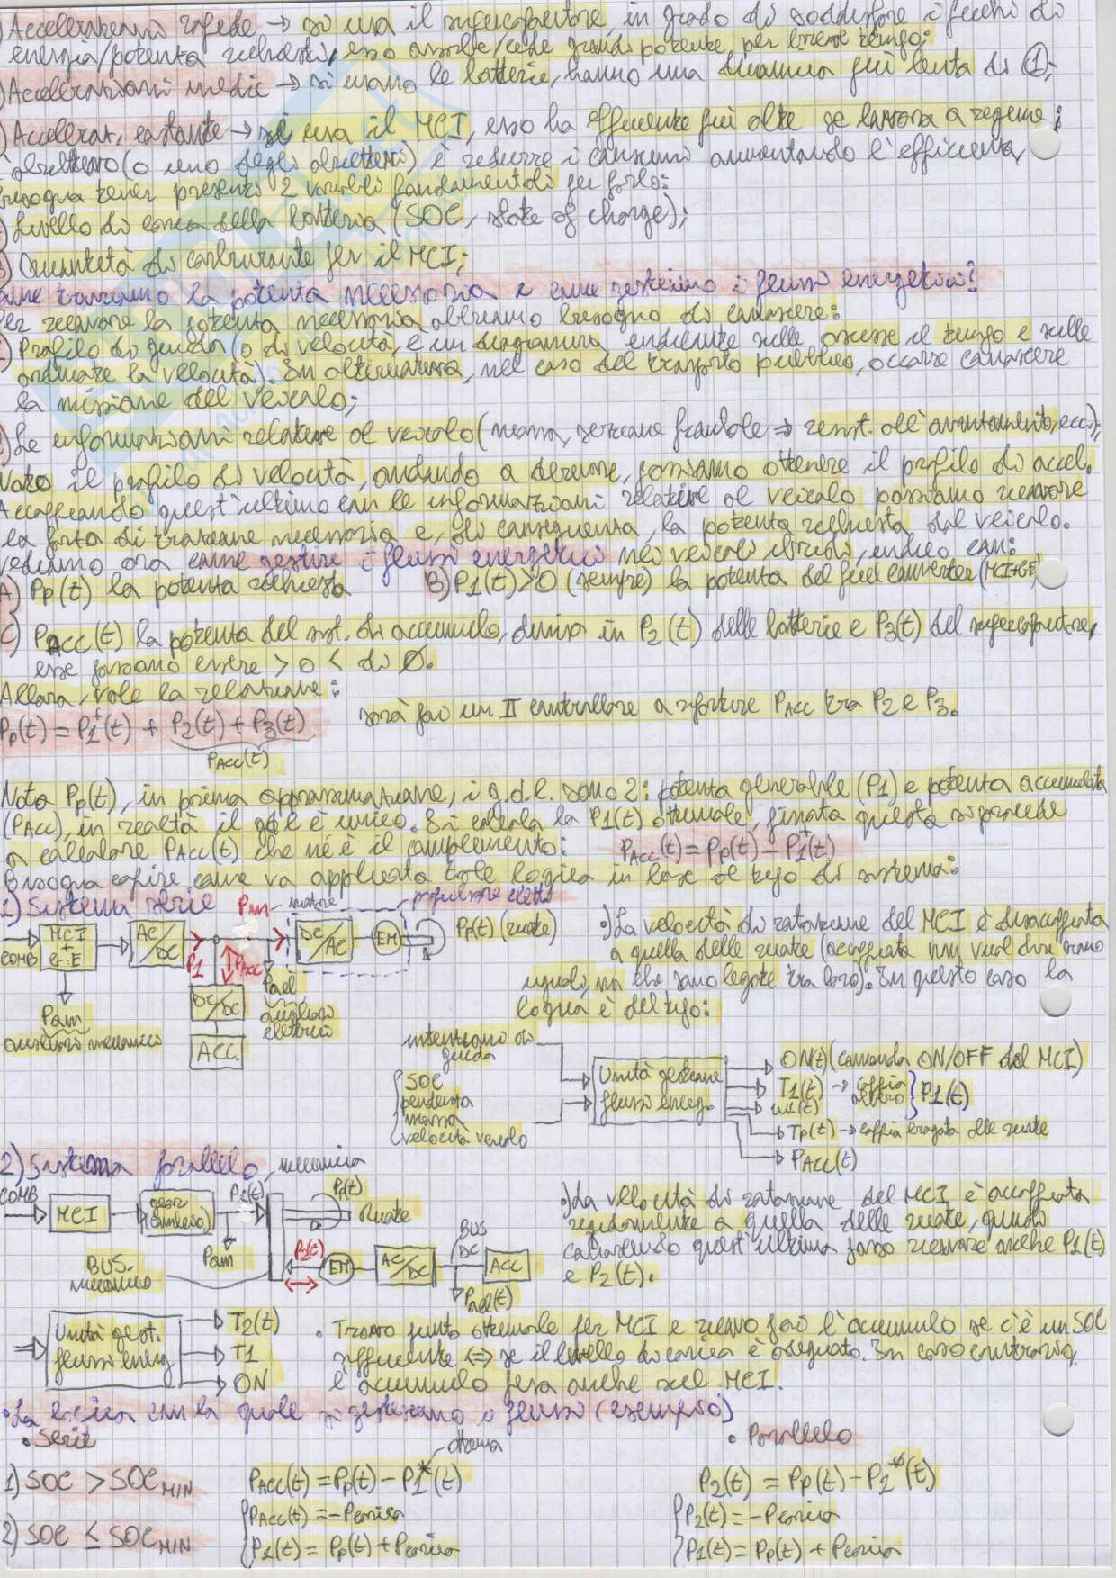 ) Accelerazioni rapide → si usa il supercapacitore, in grado di soddisfare i picchi di
energia/potenza richiesti, esso assorbe/cede grandi potenze per breve tempo;
) Accelerazioni medie → si usano le batterie, hanno una dinamica più lenta di ①;
) Acceleraz. costante → si usa il MCI, esso ha efficienze più alte se lavora a regime;
L'obiettivo (o uno degli obiettivi) è ridurre i consumi aumentando l'efficienza,
bisogna tener presenti 2 variabili fondamentali per farlo:
) Livello di carica della batteria (SOC, state of charge);
) Quantità di carburante per il MCI;
Come troviamo la potenza necessaria e come gestiamo i flussi energetici?
Per ricavare la potenza necessaria abbiamo bisogno di conoscere:
) Profilo di guida (o di velocità, è un diagramma indicante sulle ascisse il tempo e sulle
ordinate la velocità). In alternativa, nel caso del trasporto pubblico, occorre conoscere
la missione del veicolo;
) Le informazioni relative al veicolo (massa, sezione frontale ⇒ resist. all'avanzamento, ecc.);
Noto il profilo di velocità, andando a derivare, possiamo ottenere il profilo di accel.
Accoppiando quest'ultimo con le informazioni relative al veicolo possiamo ricavare
la forza di trazione necessaria e, di conseguenza, la potenza richiesta dal veicolo.
Vediamo ora come gestire i flussi energetici nei veicoli ibridi, indico con:
A) Pp(t) la potenza richiesta B) P1(t)>0 (sempre) la potenza del fuel converter (MCI+GE)
C) PACC(t) la potenza del sist. di accumulo, divisa in P2(t) delle batterie e P3(t) del supercapacitore,
esse possono essere > o < di 0.
Allora, vale la relazione:
Pp(t) = P1(t) + P2(t) + P3(t) sarà poi un II controllore a ripartire PACC tra P2 e P3.
PACC(t)
Nota Pp(t), in prima approssimazione, i g.d.l. sono 2: potenza generabile (P1) e potenza accumulata
(PACC), in realtà il gdl è unico. Si calcola la P1(t) ottimale, fissata questa si procede
a calcolare PACC(t) che né è il complemento: PACC(t) = Pp(t) - P1(t)
Bisogna capire come va applicata tale logica in base al tipo di sistema:
1) Sistema serie
Pm motore propulsore elettr.
COMB
MCI + GE
AC/DC
P1
PACC
DC/AC
EM
Pp(t) (ruote)
Pael
ausiliario elettrico
DC/DC
ACC
Pam
ausiliario meccanico
•) La velocità di rotazione del MCI è disaccoppiata
a quella delle ruote (accoppiata non vuol dire siano
uguali, ma che sono legate tra loro). In questo caso la
logica è del tipo:
intenzione di guida
SOC
pendenza
massa
velocità veicolo
Unità gestione
flussi energ.
ON(t) (comando ON/OFF del MCI)
T1(t) → coppia albero
ω1(t)
} P1(t)
Tp(t) → coppia erogata alle ruote
PACC(t)
2) Sistema parallelo, meccanica
COMB
MCI
gear
P1(t)
Pam
Pp(t)
Ruote
BUS meccanico
P2(t)
EM
AC/DC
BUS DC
ACC
Pael(t)
•) La velocità di rotazione del MCI è accoppiata
rigidamente a quella delle ruote, quindi
conoscendo quest'ultima posso ricavare anche P1(t)
e P2(t).
Unità gest.
flussi energ
T2(t)
T1
ON
• Trovo punto ottimale per MCI e ricavo poi l'accumulo se c'è un SOC
sufficiente ⇔ se il livello di carica è adeguato. In caso contrario,
l'accumulo pesa anche sul MCI.
• La logica con la quale si gestiscono i flussi (esempio)
• Serie
• Parallelo
ottima
1) SOC > SOC MIN PACC(t) = Pp(t) - P1*(t) P2(t) = Pp(t) - P1*(t)
2) SOC ≤ SOC MIN
{ PACC(t) = -Pcarica
P1(t) = Pp(t) + Pcarica
{ P2(t) = -Pcarica
P1(t) = Pp(t) + Pcarica